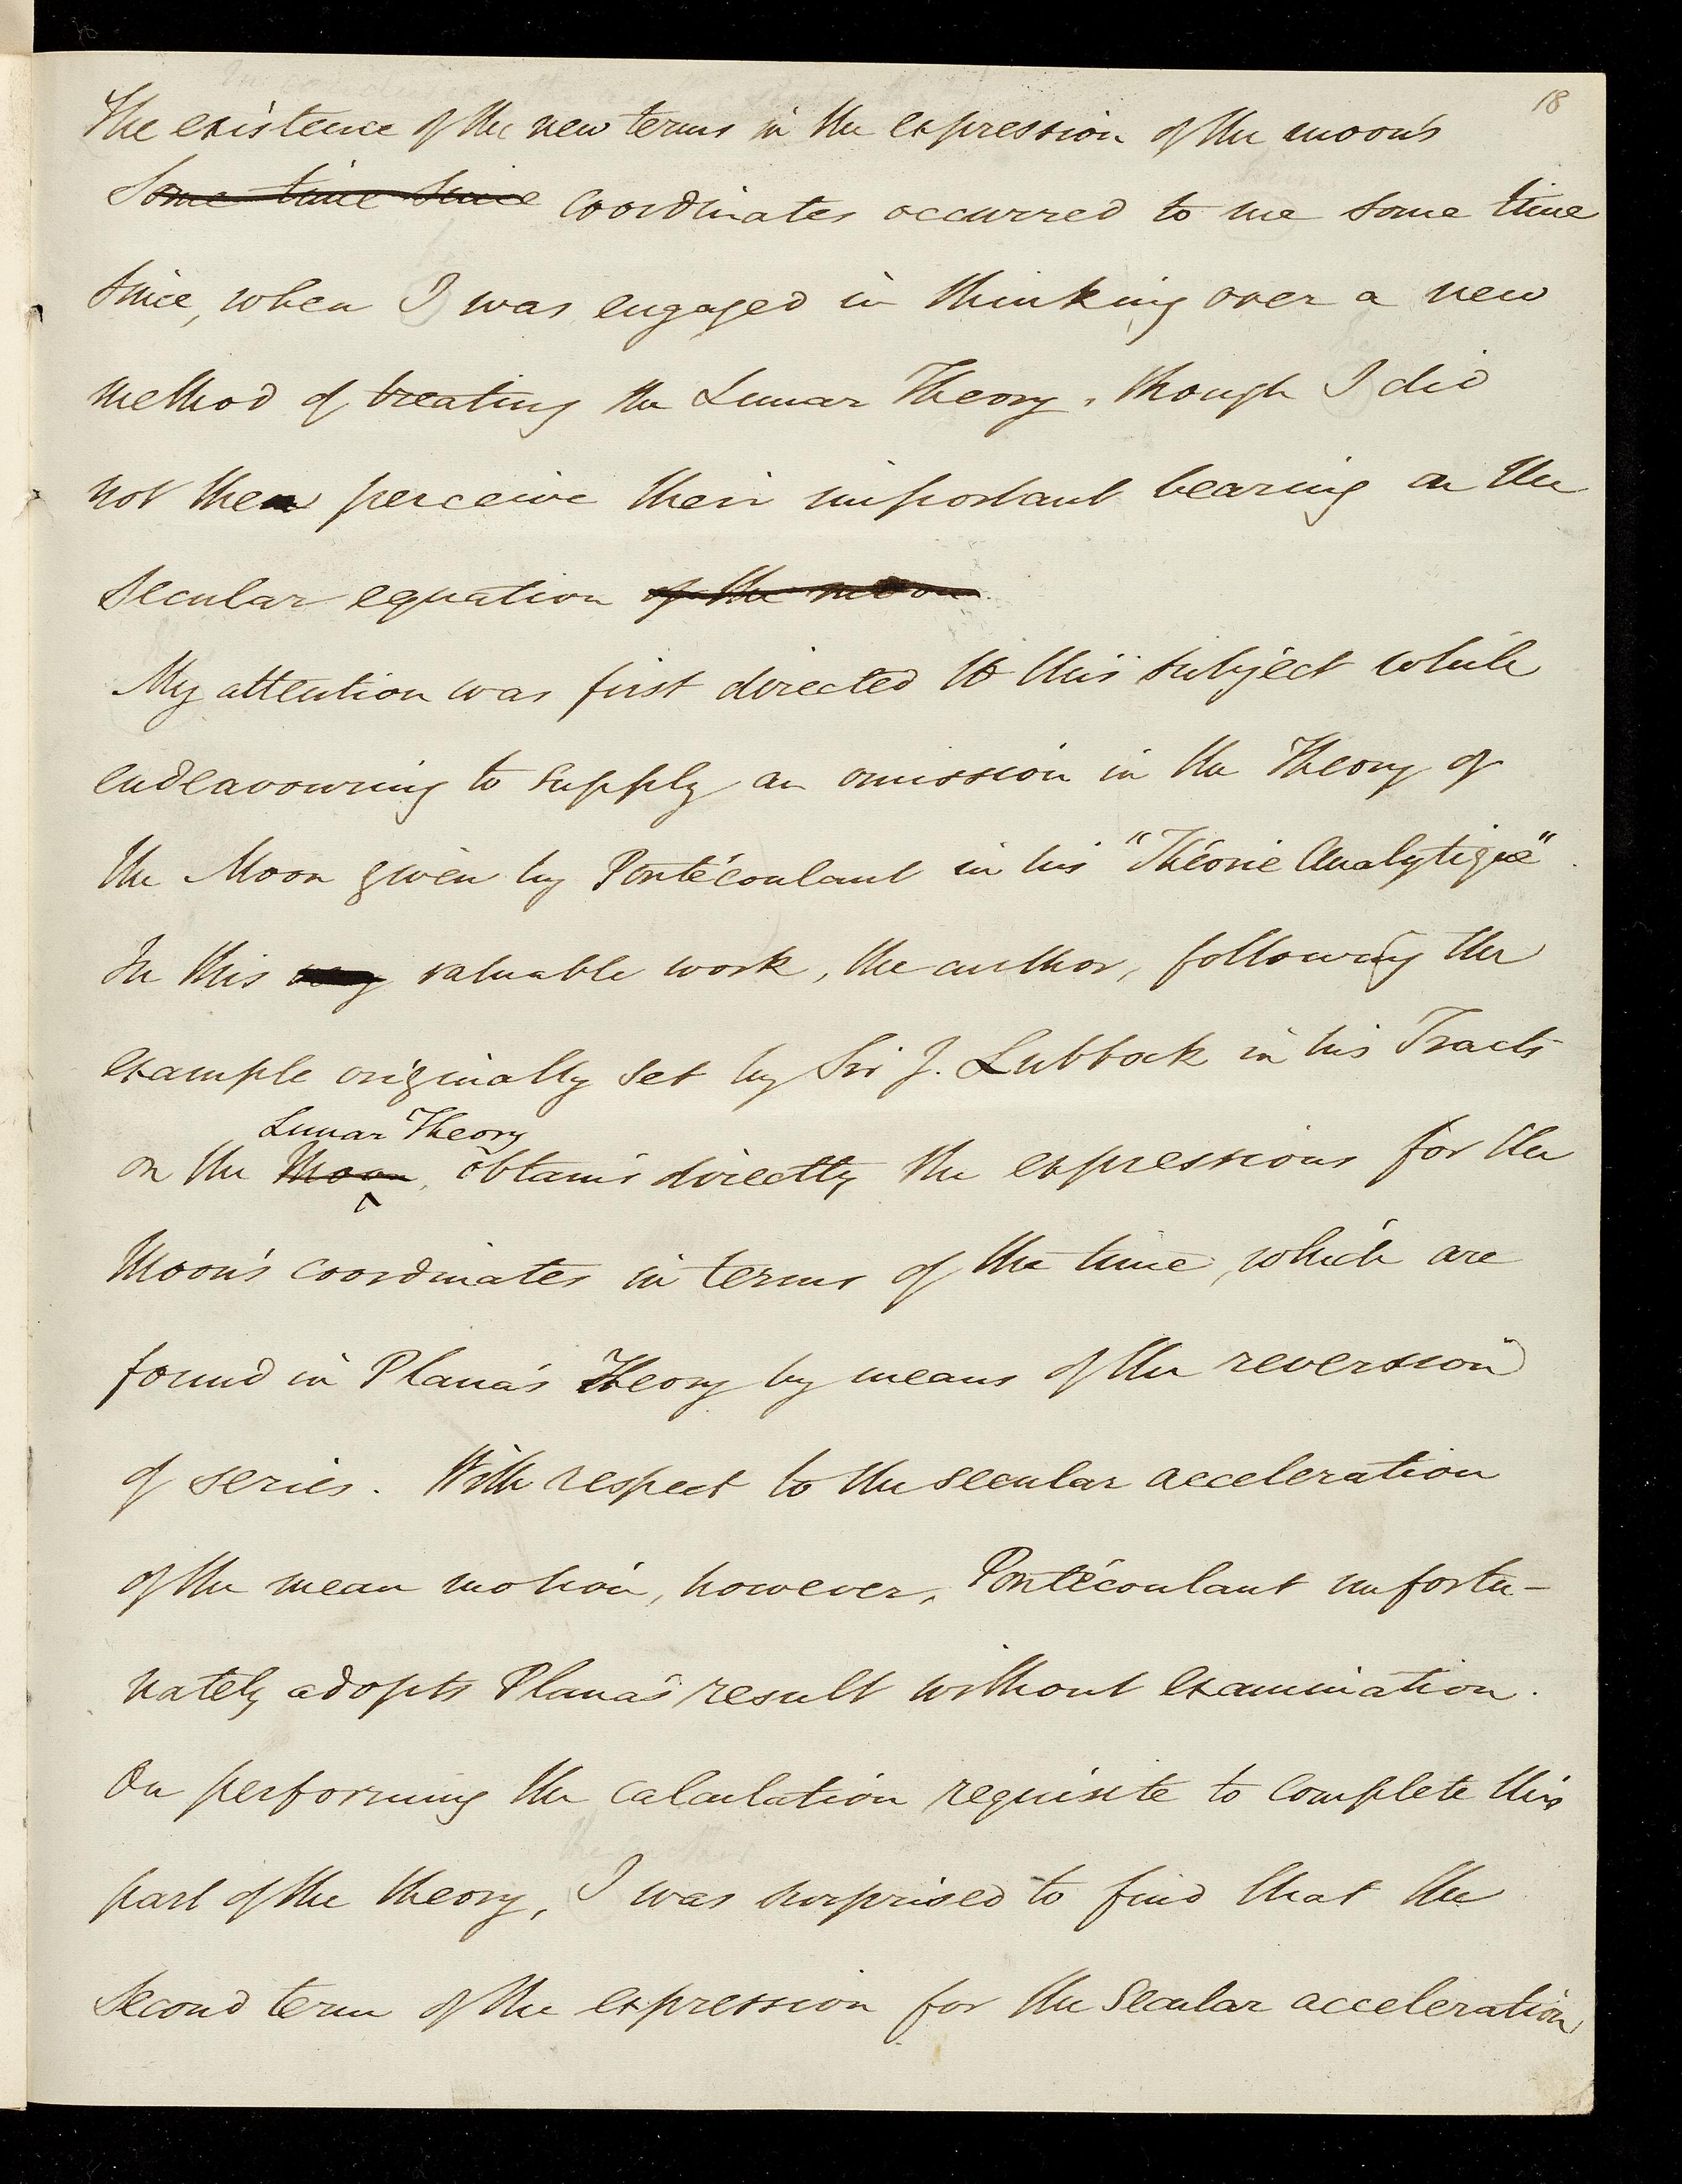 18
The existence of the new terms in the expression of the moon's
Some time since coordinates occurred to me some time
since, when I was engaged in thinking over a new
method of treating the Lunar Theory, though I did
not then perceive their important bearing on the
secular equation of the moon.
My attention was first directed to this subject while
endeavouring to supply an omission in the Theory of
the Moon given by Pontécoulant in his "Théorie Analytique".
In this very valuable work, the author, following the
example originally set by Sir J. Lubbock in his Tracts
Lunar Theory
on the Moon, obtains directly the expressions for the
Moon's coordinates in terms of the time, which are
found in Plana's Theory by means of the reversion
of series. With respect to the secular acceleration
of the mean motion, however, Pontécoulant unfortu-
nately adopts Plana's result without examination.
On performing the calculation requisite to complete this
part of the theory, I was surprised to find that the
second term of the expression for the secular acceleration